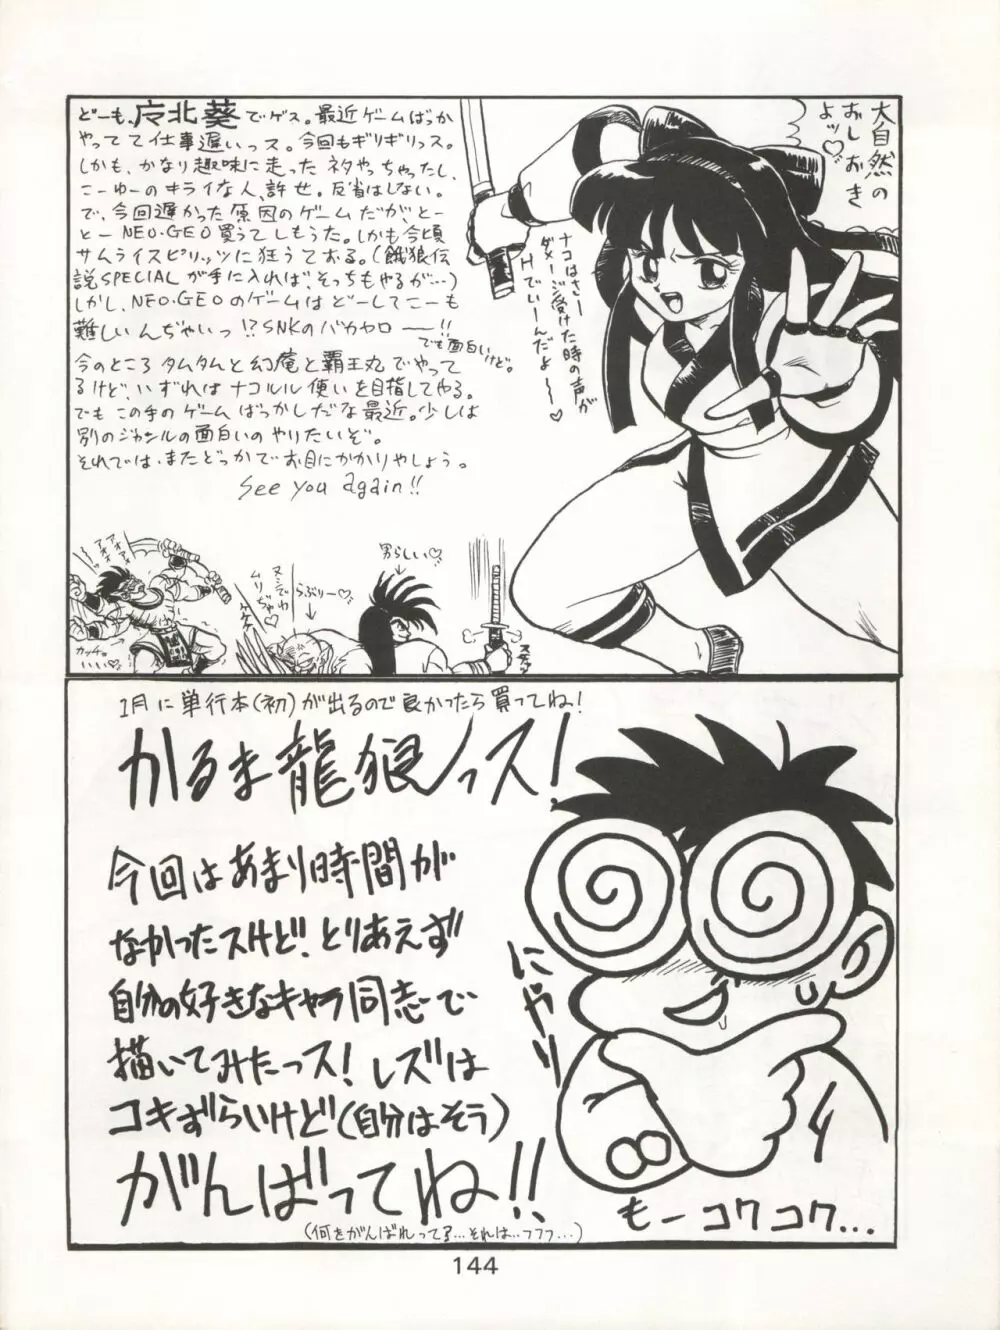 どーも、卞北葵でゲス。最近ゲームばっか
やってて仕事遅いっス。今回もギリギリっス。
しかも、かなり趣味に走ったネタやっちゃったし、
こーゆーのキライな人、許せ。反省はしない。
で、今回遅かった原因のゲームだが、とー
とーNEO・GEO買うてしもうた。しかも今頃
サムライスピリッツに狂うておる。(餓狼伝
説SPECIALが手に入れば、そっちもやるが…)
しかし、NEO・GEOのゲームはどーしてこーも
難しいんぢゃいっ!?SNKのバカヤロ——!!
でも面白いけど。
今のところタムタムと幻庵と覇王丸でやって
るけど、いずれはナコルル使いを目指してやる。
でもこの手のゲームばっかしだな最近。少しは
別のジャンルの面白いのやりたいぞ。
それでは、またどっかでお目にかかりやしょう。
See you again!!
大自然の
おしおき
よッ♡
ナコはさー
ダメージ受けた時の声が
Hでいーんだよ〜〜♡
アオアオ
アオッ
カッチョ
いい♡
ヌシでわ
ムリぢゃ♡
ケケケ
らぶりー♡
男らしい♡
1月に単行本(初)が出るので良かったら買ってね!
かるま龍狼っス!
今回はあまり時間が
なかったスけど、とりあえず
自分の好きなキャラ同志で
描いてみたっス!レズは
コキずらいけど(自分はそう)
がんばってね!!
(何をがんばれって?…それは…フフフ…)
にやり
もーコワコワ…
144